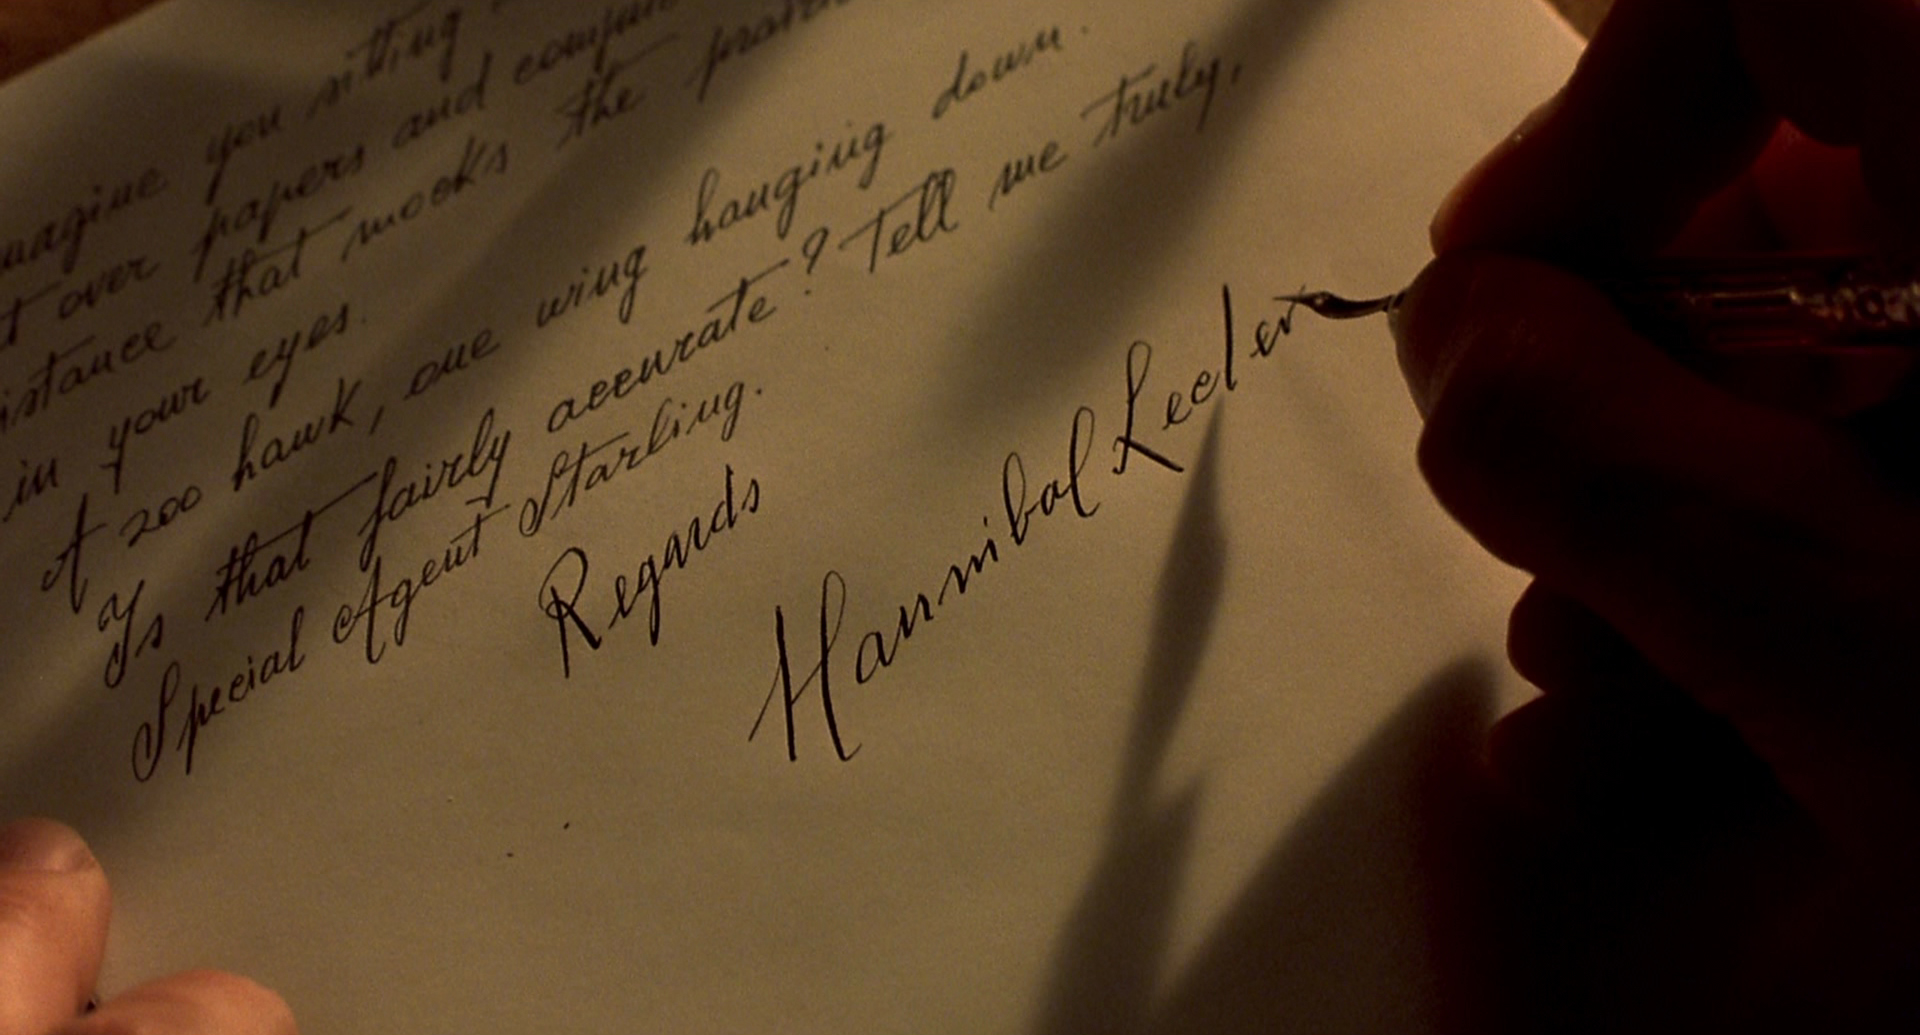 you sitting
over papers and
that mocks the
in your eyes.
A zoo hawk, one wing hanging down.
Is that fairly accurate? Tell me truly,
Special Agent Starling.
Regards
Hannibal Lecter